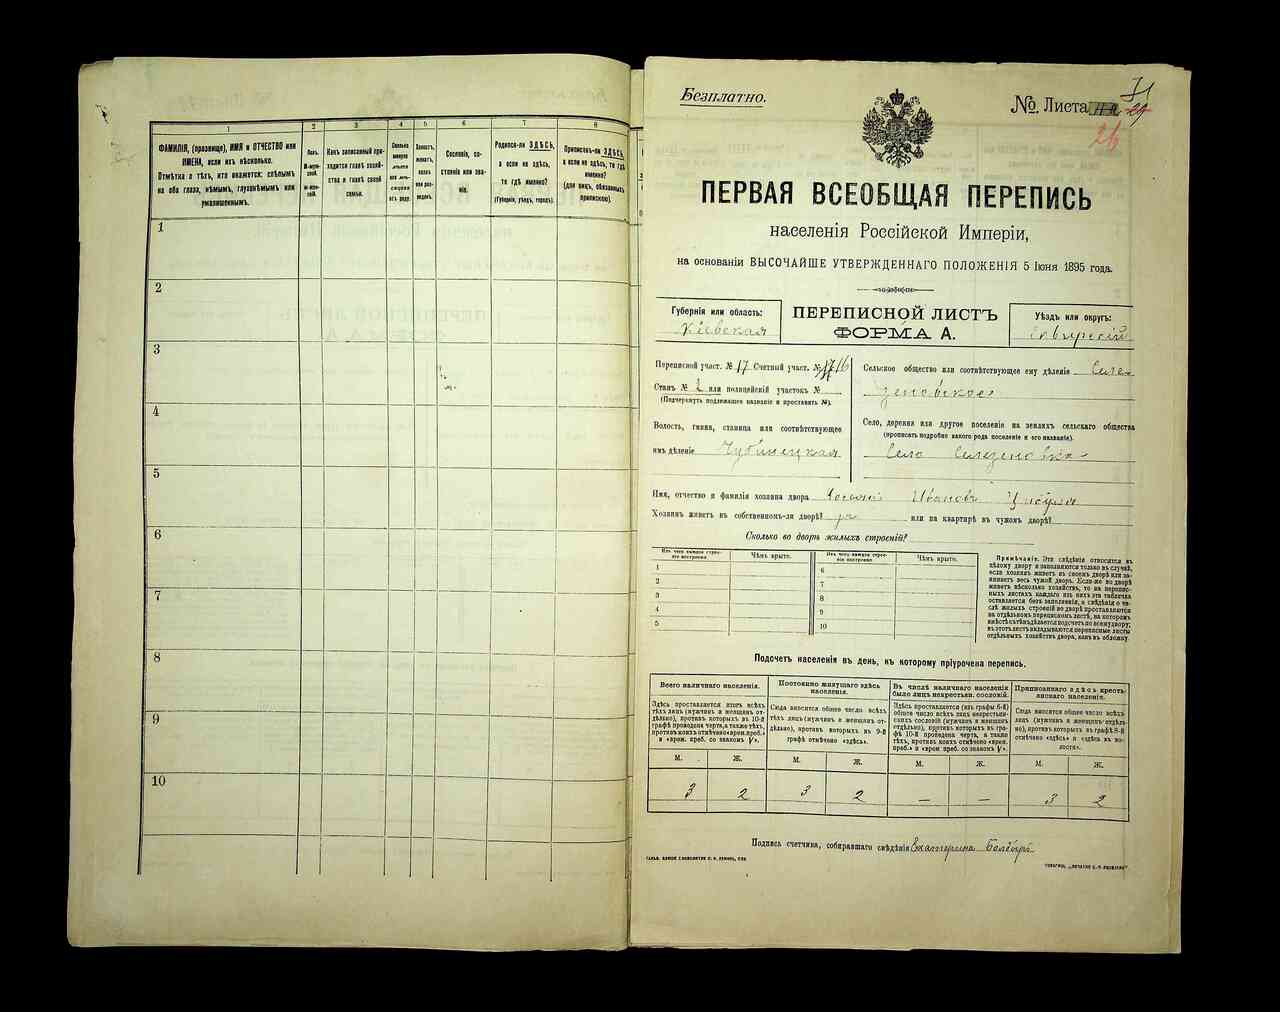 1
2
3
4
5
6
7
8
ФАМИЛІЯ, (прозвище), ИМЯ и ОТЧЕСТВО или
ИМЕНА, если ихъ нѣсколько.
Отмѣтка о тѣхъ, кто окажется: слѣпымъ
на оба глаза, нѣмымъ, глухонѣмымъ или
умалишеннымъ.
Полъ.
Какъ записанный при-
ходится главѣ хозяй-
ства и главѣ своей
семьи.
Сословіе, со-
стояніе или зва-
ніе.
Родился-ли ЗДѢСЬ,
а если не здѣсь,
то гдѣ именно?
(Губернія, уѣздъ, городъ).
Приписанъ-ли ЗДѢСЬ,
а если не здѣсь, то гдѣ
именно?
(для лицъ, обязанныхъ
припискою).
1
2
3
4
5
6
7
8
9
10
Безплатно.
№ Листа 29
31
26
ПЕРВАЯ ВСЕОБЩАЯ ПЕРЕПИСЬ
населенія Россійской Имперіи,
на основаніи ВЫСОЧАЙШЕ УТВЕРЖДЕННАГО ПОЛОЖЕНІЯ 5 Іюня 1895 года.
Губернія или область:
Кіевская
ПЕРЕПИСНОЙ ЛИСТЪ
ФОРМА А.
Уѣздъ или округъ:
Сквирскій
Переписной участ. № 17 Счетный участ. № 16
Станъ № 2 или полицейскій участокъ №
(Подчеркнуть подлежащее названіе и проставить №).
Волость, гмина, станица или соотвѣтствующее
имъ дѣленіе Чубинецкая
Сельское общество или соотвѣтствующее ему дѣленіе Селе-
зеновское
Село, деревня или другое поселеніе на земляхъ сельскаго общества
(прописать подробно какого рода поселеніе и его названіе).
Село Селезеновка
Имя, отчество и фамилія хозяина двора Ивановъ
Хозяинъ живетъ въ собственномъ-ли дворѣ? или на квартирѣ въ чужомъ дворѣ?
Сколько во дворѣ жилыхъ строеній?
Изъ чего каждое строе-
ніе построено
Чѣмъ крыто.
Изъ чего каждое строе-
ніе построено
Чѣмъ крыто.
1
2
3
4
5
6
7
8
9
10
Примѣчаніе. Эти свѣдѣнія относятся къ
цѣлому двору и заполняются только въ случаѣ,
если хозяинъ живетъ въ своемъ дворѣ или за-
нимаетъ весь чужой дворъ. Если-же во дворѣ
живетъ нѣсколько хозяйствъ, то на перепис-
ныхъ листахъ каждаго изъ нихъ эта табличка
оставляется безъ заполненія, а свѣдѣнія о чи-
слѣ жилыхъ строеній во дворѣ проставляются
на отдѣльномъ переписномъ листѣ, на которомъ
вмѣстѣ съ тѣмъ дѣлается подсчетъ по всему двору;
въ этотъ листъ вкладываются переписные листы
отдѣльныхъ хозяйствъ двора, какъ въ обложку.
Подсчетъ населенія въ день, къ которому пріурочена перепись.
Всего наличнаго населенія.
Здѣсь проставляется итогъ всѣхъ
лицъ (мужчинъ и женщинъ от-
дѣльно), противъ которыхъ въ 10-й
графѣ проведена черта, а также тѣхъ,
противъ коихъ отмѣчено «врем. преб.»
и «врем. преб. со знакомъ V».
Постоянно живущаго здѣсь
населенія.
Сюда вносится общее число всѣхъ
тѣхъ лицъ (мужчинъ и женщинъ от-
дѣльно), противъ которыхъ въ 9-й
графѣ отмѣчено «здѣсь».
Въ числѣ наличнаго населенія
было лицъ некрестьян. сословій.
Здѣсь проставляется (изъ графы 6-й)
общее число всѣхъ лицъ некрестьян-
скихъ сословій (мужчинъ и женщинъ
отдѣльно), противъ которыхъ въ гра-
фѣ 10-й проведена черта, а также
тѣхъ, противъ коихъ отмѣчено «врем.
преб.» и «врем. преб. со знакомъ V».
Приписаннаго здѣсь кресть-
янскаго населенія.
Сюда вносится общее число всѣхъ
лицъ (мужчинъ и женщинъ отдѣль-
но), противъ которыхъ въ графѣ 8-й
отмѣчено «здѣсь» и «здѣсь въ во-
лости».
М. Ж. М. Ж. М. Ж. М. Ж.
3 2 3 2 — — 3 2
Подпись счетчика, собиравшаго свѣдѣнія Екатерина